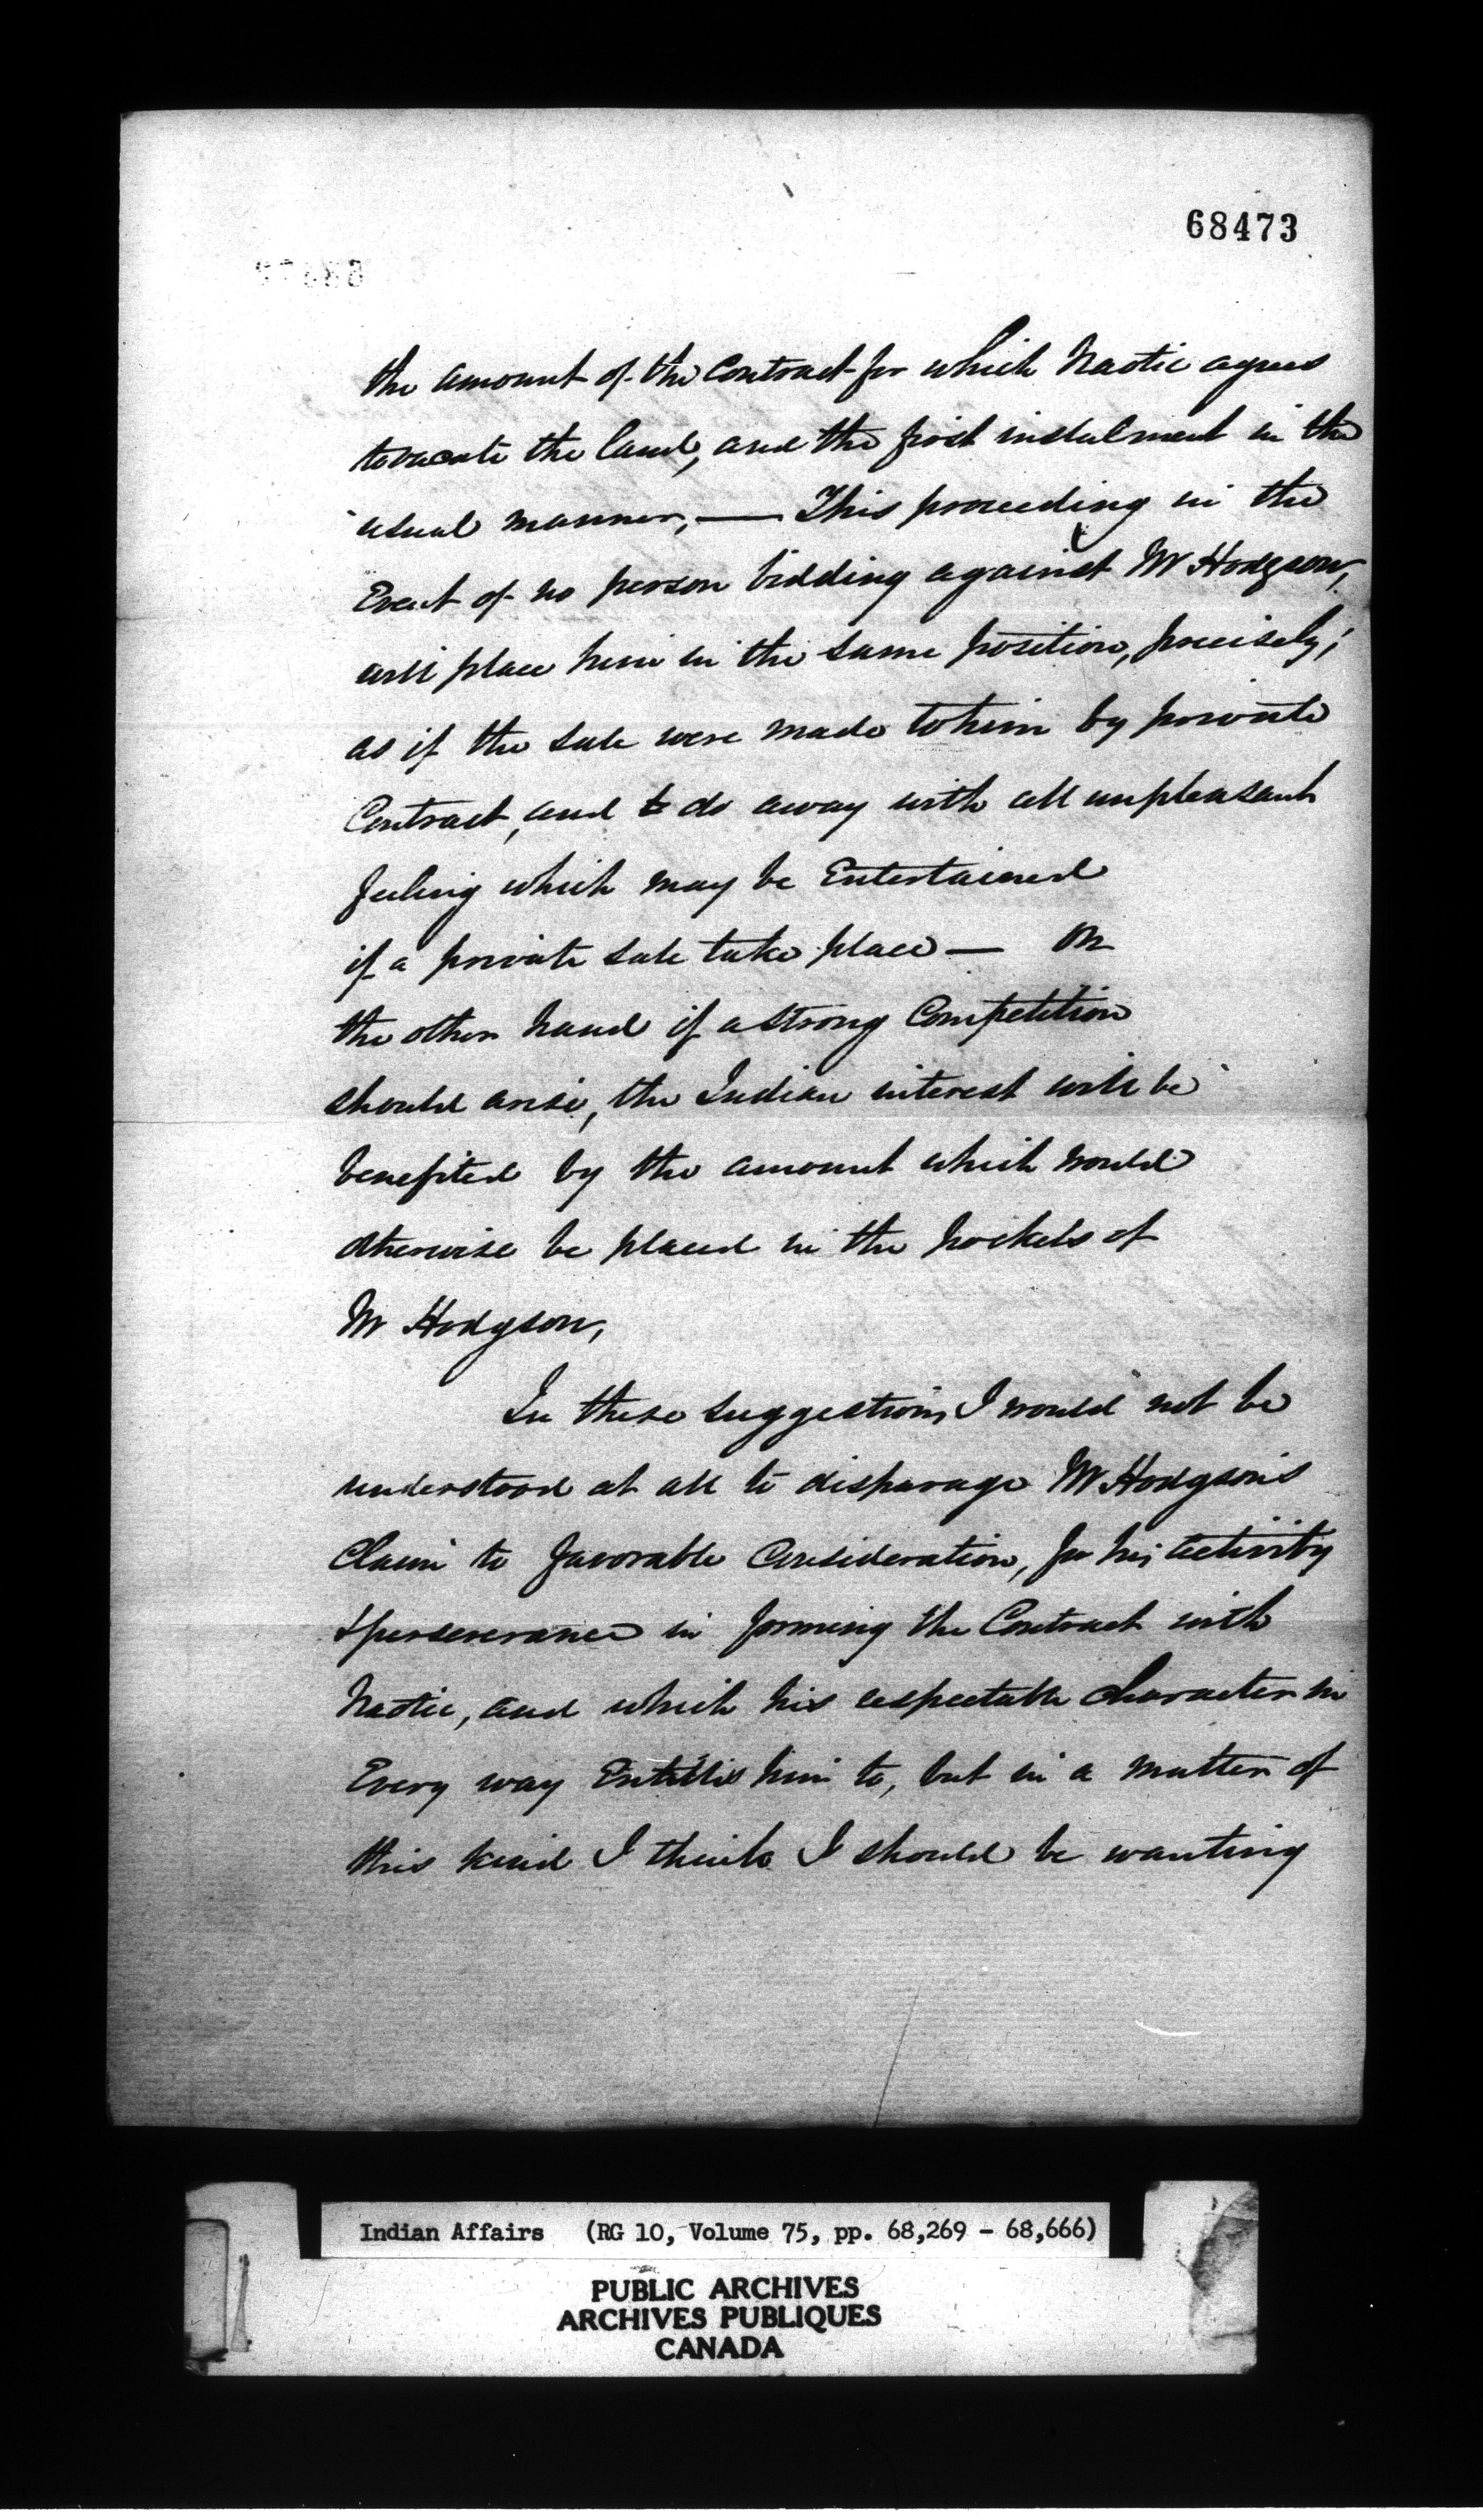 68473
the amount of the Contract for which Naotie agrees
to vacate the land, and the first instalment in the
usual manner, — This proceeding in the
Event of no person bidding against Mr Hodgson,
will place him in the same position, precisely,
as if the sale were made to him by private
Contract, and to do away with all unpleasant
feeling which may be Entertained
if a private sale take place — On
the other hand if a strong Competition
should arise, the Indian interest will be
benefited by the amount which would
otherwise be placed in the pockets of
Mr Hodgson,
In these suggestions, I would not be
understood at all to disparage Mr Hodgson's
Claim to favorable Consideration, for his activity
& perseverance in forming the Contract with
Naotie, and which his respectable character in
Every way Entitles him to, but in a matter of
this kind I think I should be wanting
Indian Affairs (RG 10, Volume 75, pp. 68,269 - 68,666)
PUBLIC ARCHIVES
ARCHIVES PUBLIQUES
CANADA